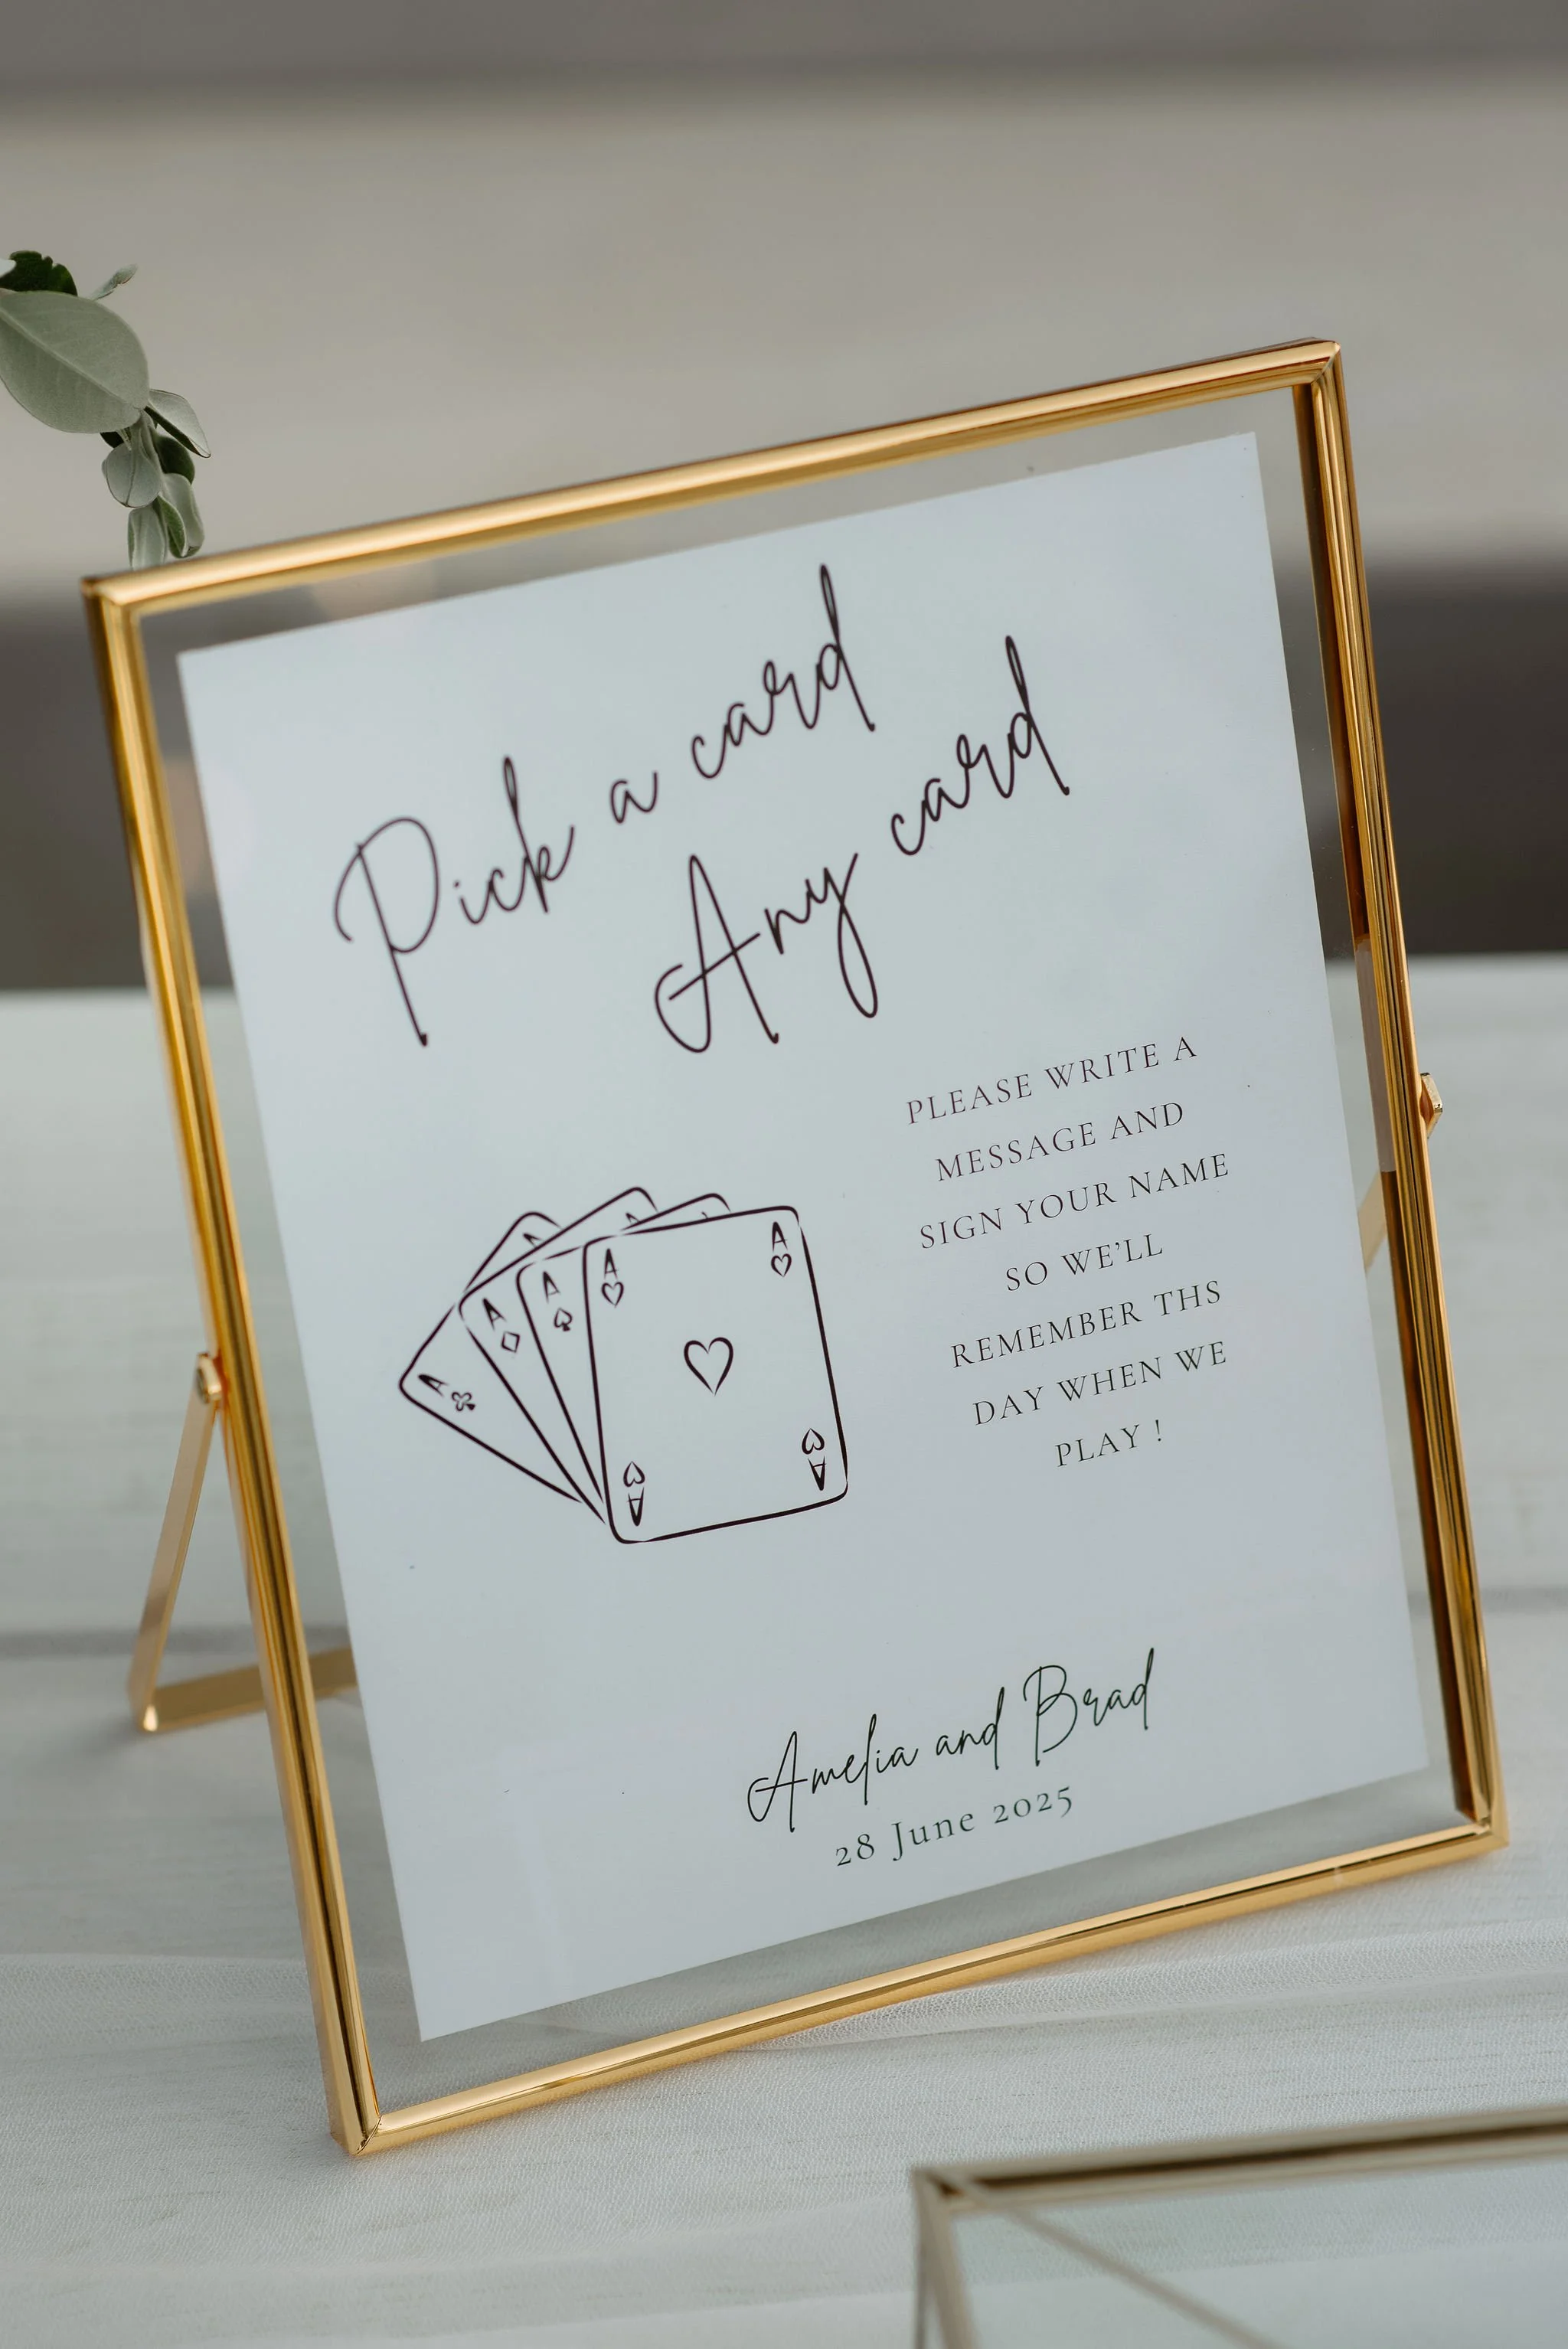 Pick a card
Any card
PLEASE WRITE A
MESSAGE AND
SIGN YOUR NAME
SO WE'LL
REMEMBER THS
DAY WHEN WE
PLAY !
A
A
A
A
A
A
A
Amelia and Brad
28 June 2025